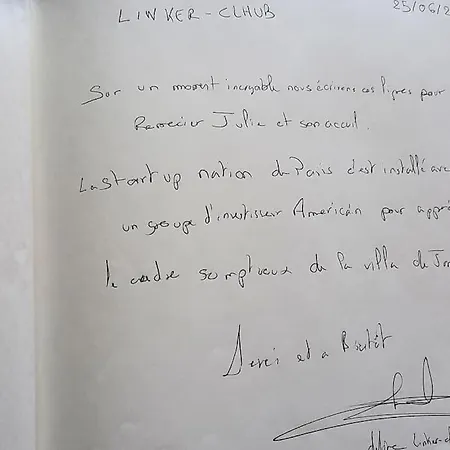 LINKER-CLHUB
25/06/2
Sur un moment incroyable nous écrivons ces lignes pour
Remercier Julie et son accueil.
La Start up nation de Paris s'est installé avec
un groupe d'investisseur Américain pour appré
le cadre somptueux de la villa de
Merci et a Bientôt
Linker-c